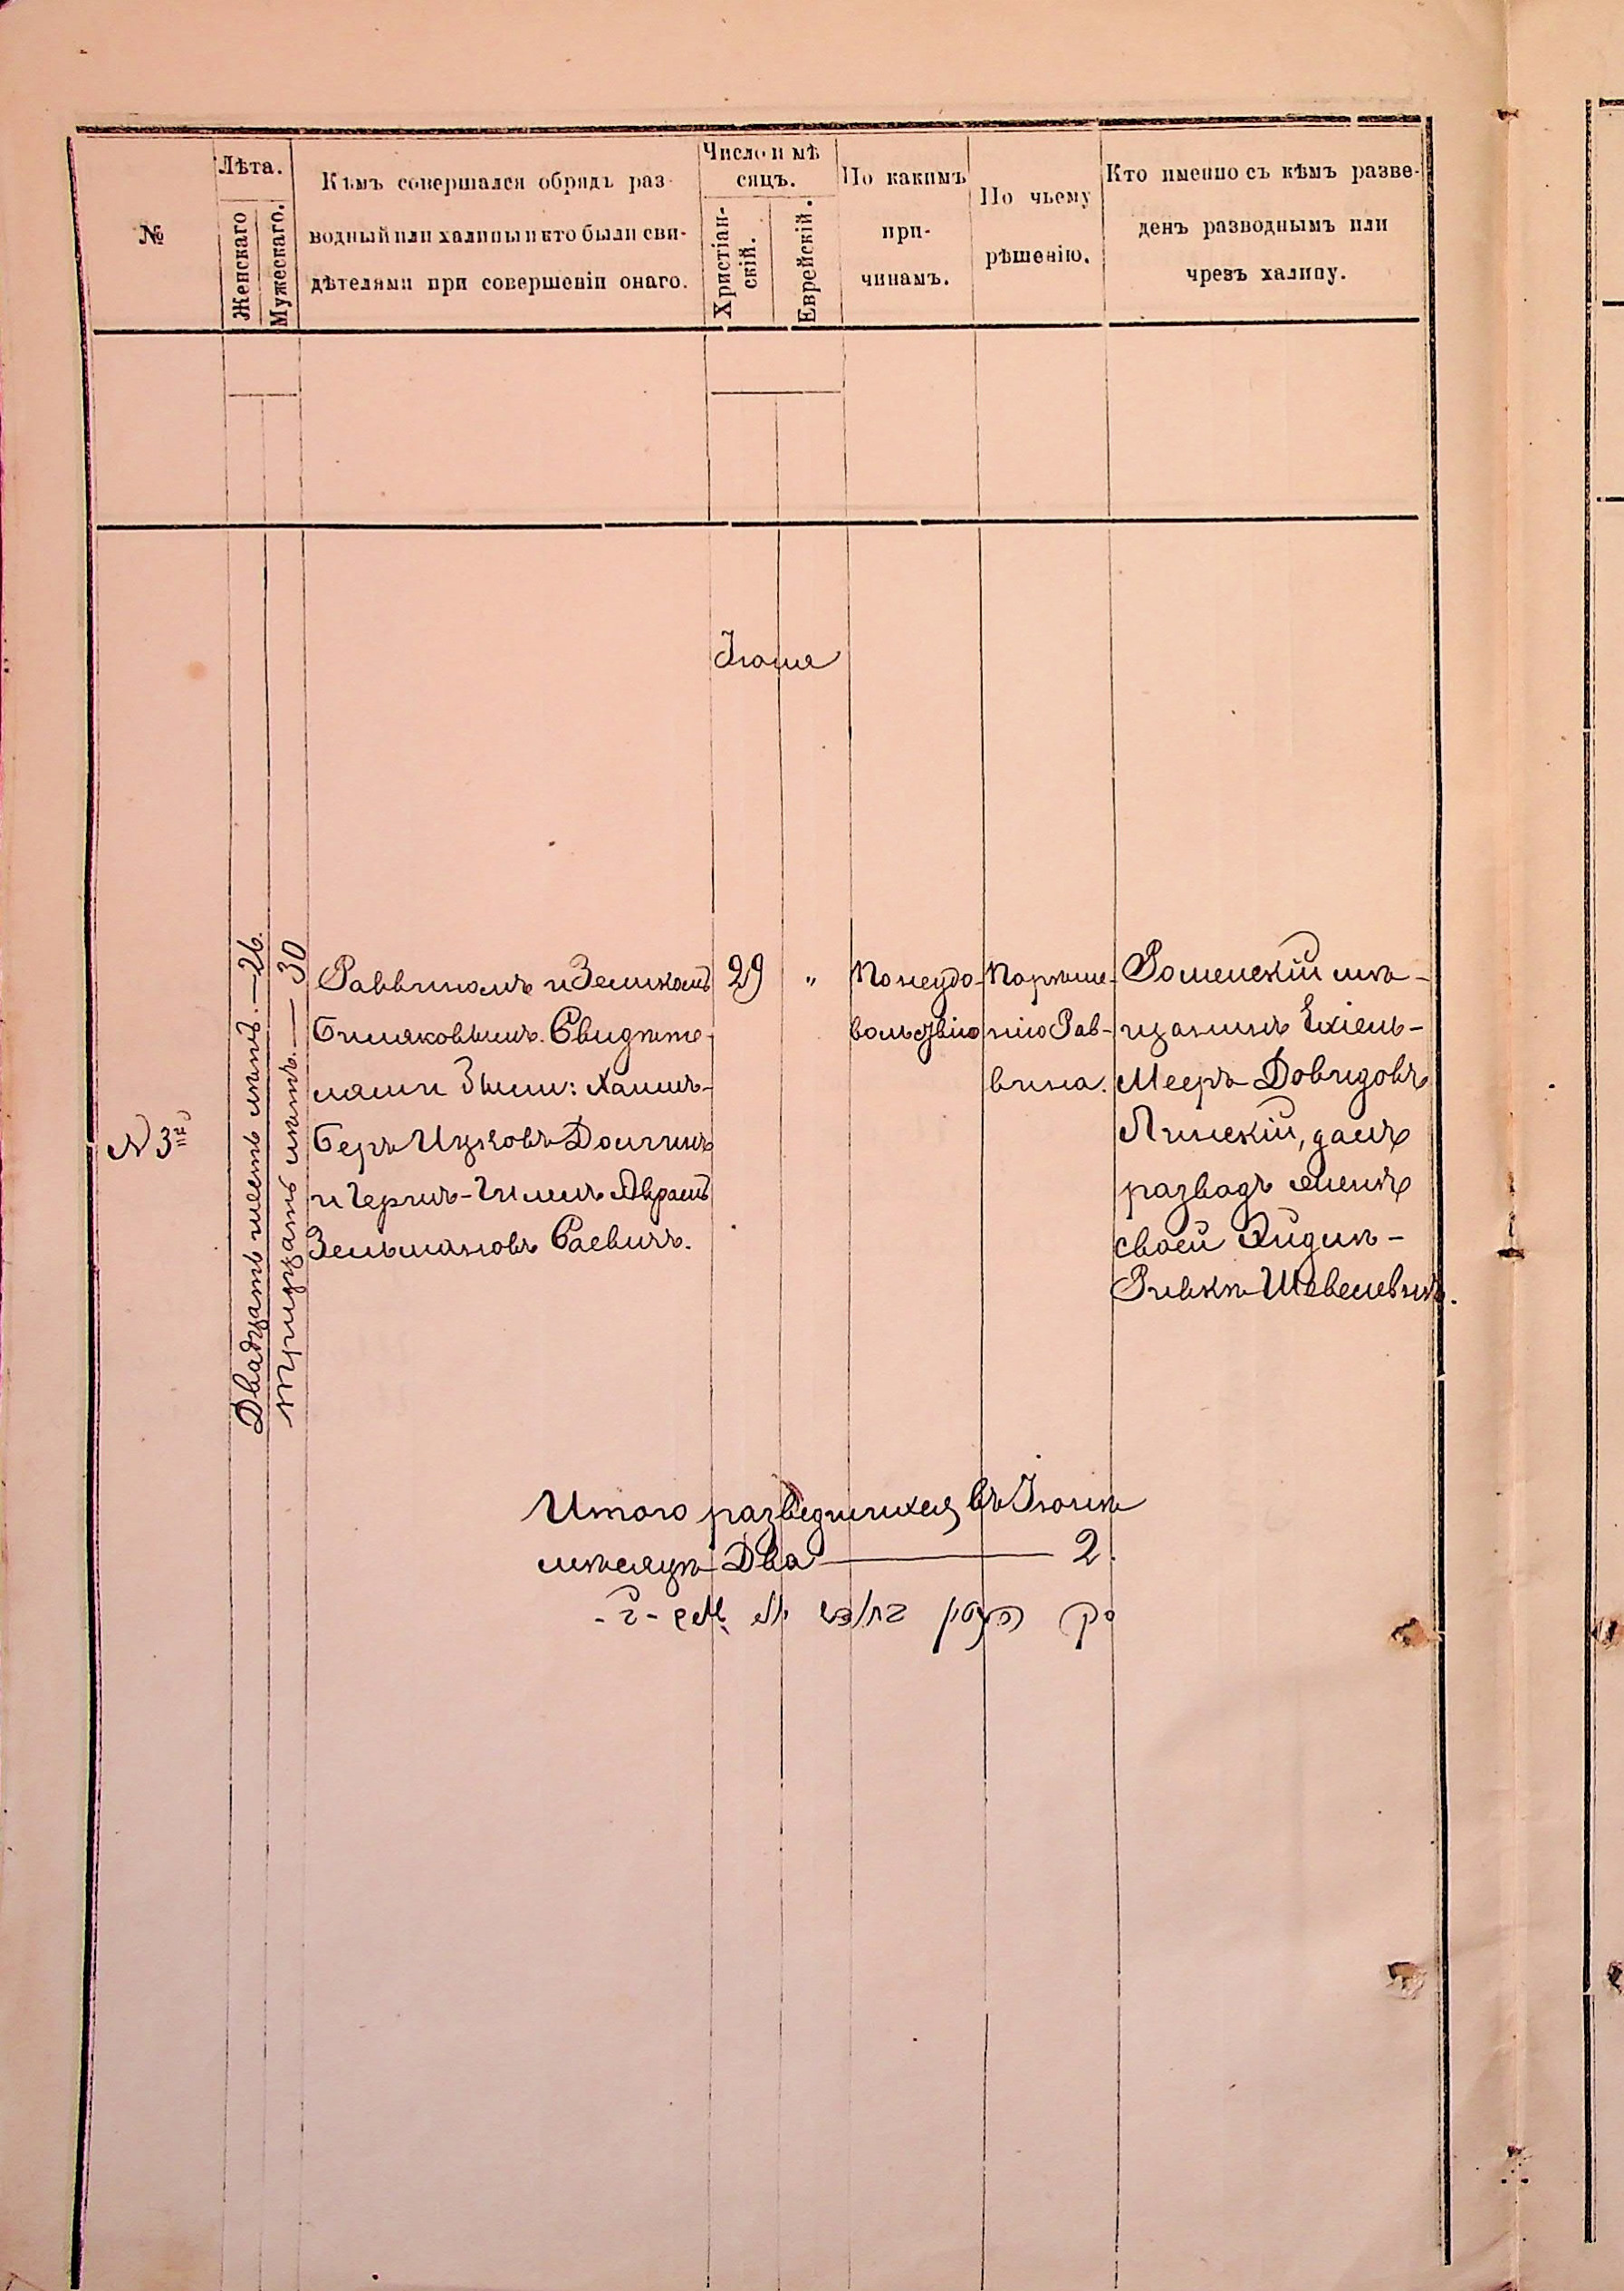 №
Лѣта.
Женскаго
Мужескаго.
Кѣмъ совершался обрядъ раз-
водный или халицы и кто были сви-
дѣтелями при совершеніи онаго.
Число и мѣ
сяцъ.
Христіан-
скій.
Еврейскій.
По какимъ
при-
чинамъ.
По чьему
рѣшенію.
Кто именно съ кѣмъ разве-
денъ разводнымъ или
чрезъ халицу.
Іюня
N 3й
Двадцать шесть лѣтъ. — 26.
тридцать лѣтъ. — 30
Раввиномъ и
Свидѣте-
лями были: Хаимъ-
Беръ Ицковъ Долгинъ
и Герцъ-Гилель Аврамъ
Зельмановъ Саевичъ.
29 "
По неудо-
вольствію
По рѣше-
нію Рав-
вина.
Роменскій мѣ-
щанинъ Ехіель-
Мееръ Довидовъ
Линскій, далъ
разводъ женѣ
своей Эйдлѣ-
Ривкѣ Шевелевнѣ.
Итого разведшихся въ Іюнѣ
мѣсяцѣ Два — 2.